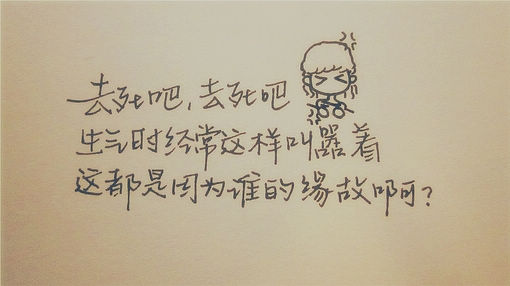 去死吧，去死吧
生气时经常这样叫嚣着
这都是因为谁的缘故啊？